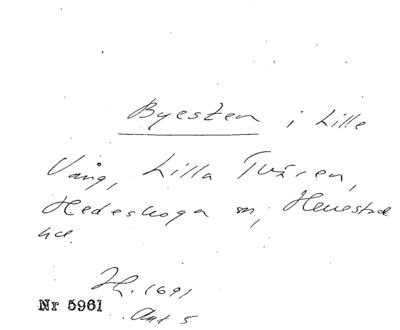 Byesten i Lille
Vång, Lilla Tvären,
Hedeskoga sn, Herrestad
hd.
H. 1691
Akt 5
Nr 5961